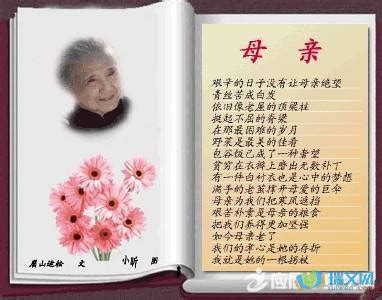 母 亲
艰辛的日子没有让母亲绝望
青丝苦成白发
依旧像老屋的顶梁柱
挺起不屈的脊梁
在那最困难的岁月
野菜是最美的佳肴
包谷饭已成了一种奢望
贫穷在衣裤上磨出无数补丁
有一件白衬衣也是心中的梦想
满手的老茧撑开母爱的巨伞
母亲为我们把寒风遮挡
艰苦朴素是母亲的粮食
把我们养得更加坚强
如今母亲老了
我们的孝心是她的存折
我就是她的一根拐杖
眉山迪桧 文 小昕 图